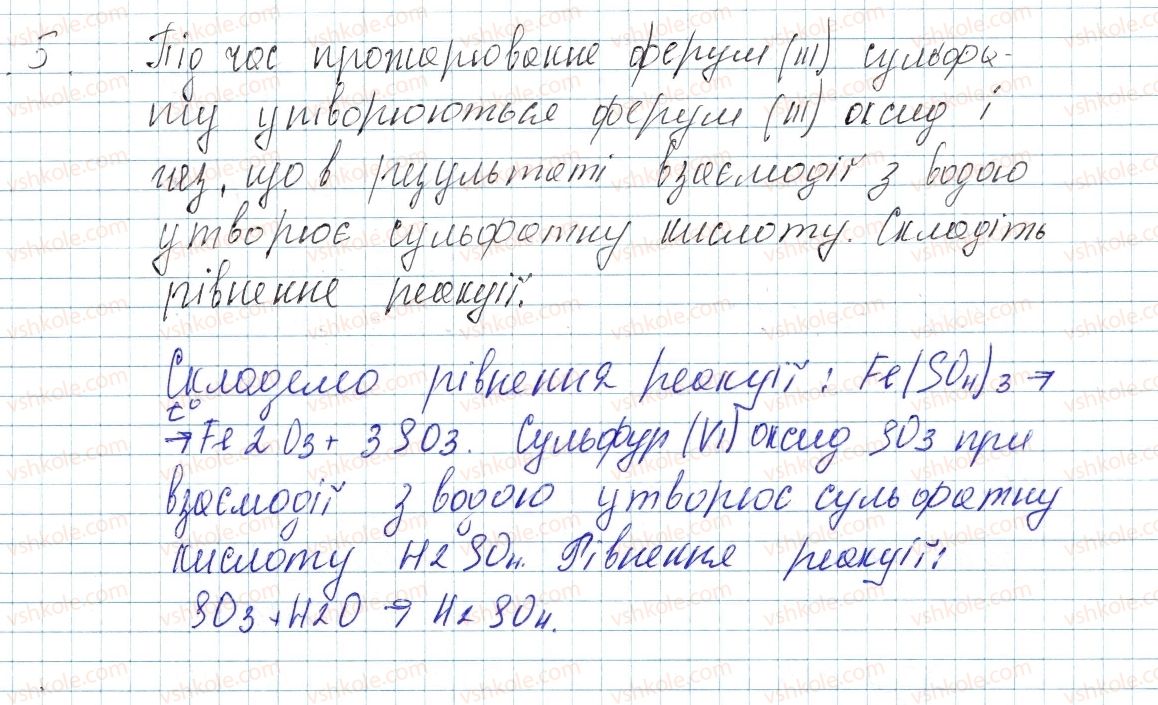 5. Під час прожарювання ферум (III) сульфа-
ту утворюються ферум (III) оксид і
газ, що в результаті взаємодії з водою
утворює сульфатну кислоту. Складіть
рівнення реакції.
Складемо рівнення реакції: Fe(SO4)3 →
t°
→ Fe2O3 + 3SO3. Сульфур (VI) оксид SO3 при
взаємодії з водою утворює сульфатну
кислоту H2SO4. Рівнення реакції:
SO3 + H2O → H2SO4.